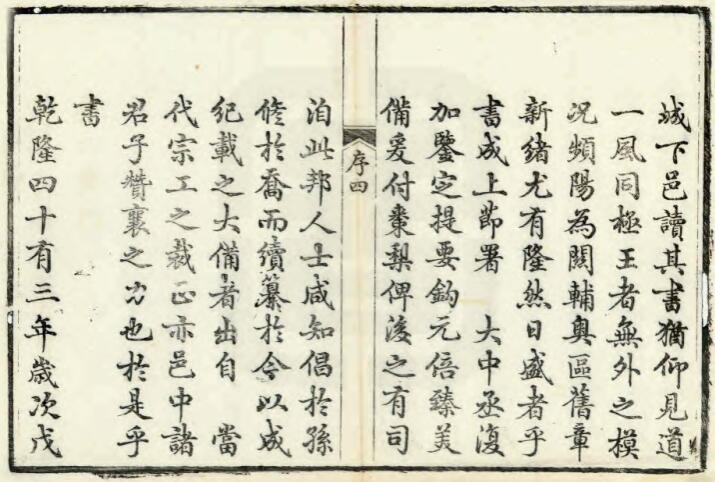 城下邑讀其書猶仰見道
一風同極王者無外之模
況頻陽為關輔奧區舊章
新緒尤有隆然日盛者乎
書成上節署　大中丞復
加鑒定提要鈎元倍臻美
備爰付棗梨俾後之有司
序四
洎此邦人士咸知倡於孫
修於喬而續纂於今以成
紀載之大備者出自　當
代宗工之裁正亦邑中諸
君子贊襄之力也於是乎
書
乾隆四十有三年歲次戊